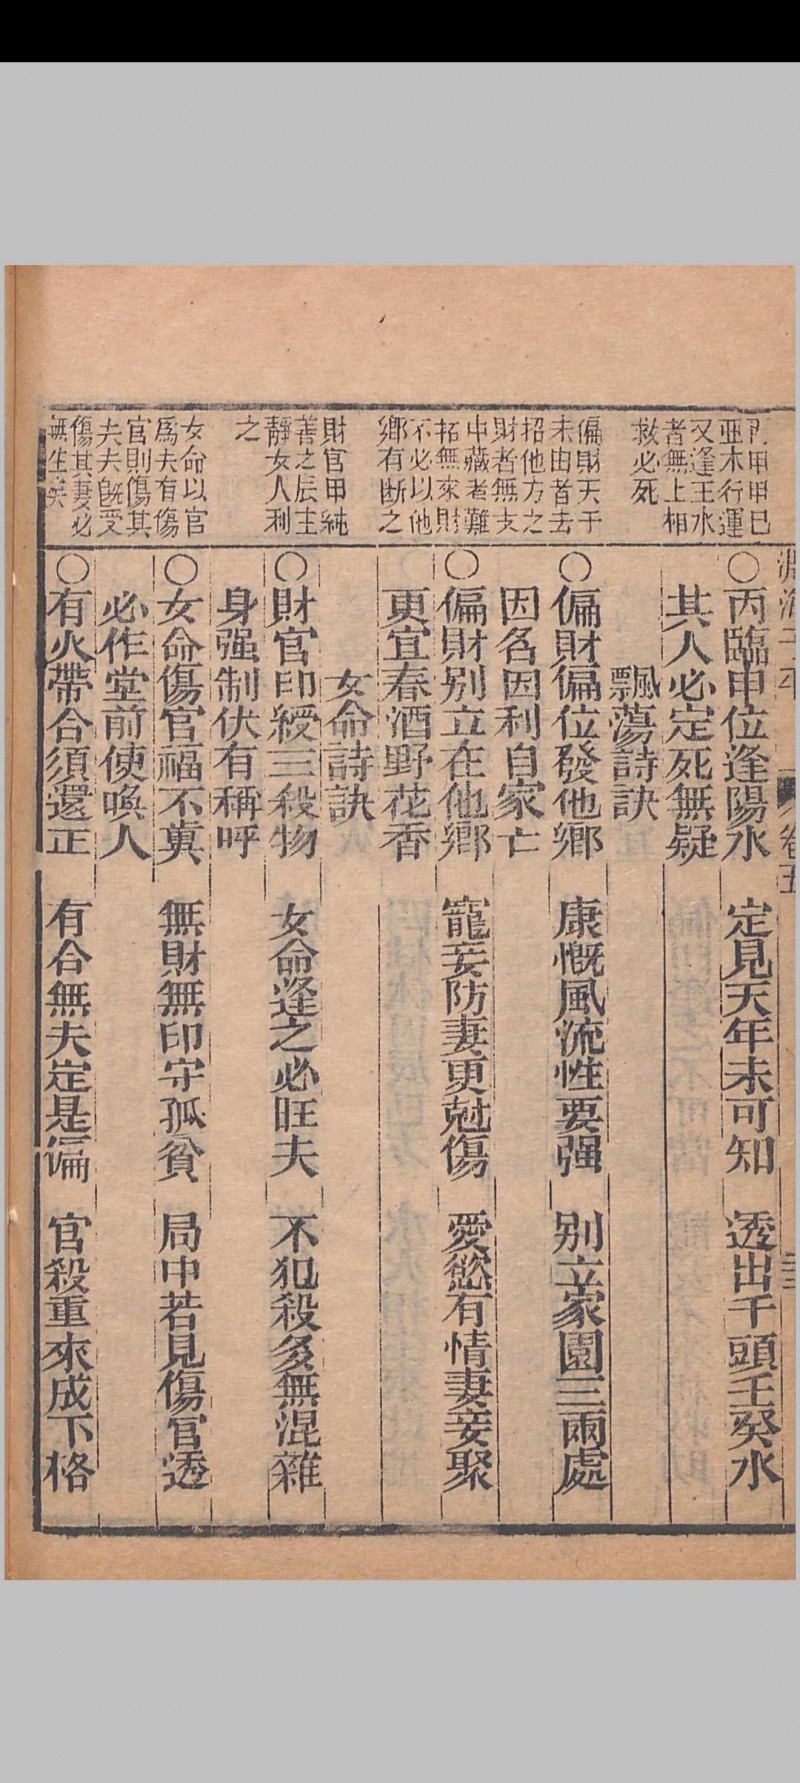 淵海子平 卷五
甲甲巳
亜木行運
又逢王水
者無上相
救必死
偏財天于
未由者去
招他方之
財者無支
中藏者難
拓無來財
不必以他
鄉有断之
財官甲純
善之辰主
靜女人利
之
女命以官
爲夫有傷
官則傷其
夫夫旣受
傷其妻必
無生矣
○丙臨申位逢陽水 定見天年未可知 透出干頭壬癸水
其人必定死無疑
飄蕩詩訣
○偏財偏位發他鄉 康慨風流性要强 别立家園三兩處
因名因利自家亡
○偏財别立在他鄉 寵妾防妻更尅傷 愛慾有情妻妾聚
更宜春酒野花香
女命詩訣
○財官印綬三殺物 女命逢之必旺夫 不犯殺多無混雜
身强制伏有稱呼
○女命傷官福不眞 無財無印守孤貧 局中若見傷官透
必作堂前使喚人
○有火帶合須還正 有合無夫定是偏 官殺重來成下格